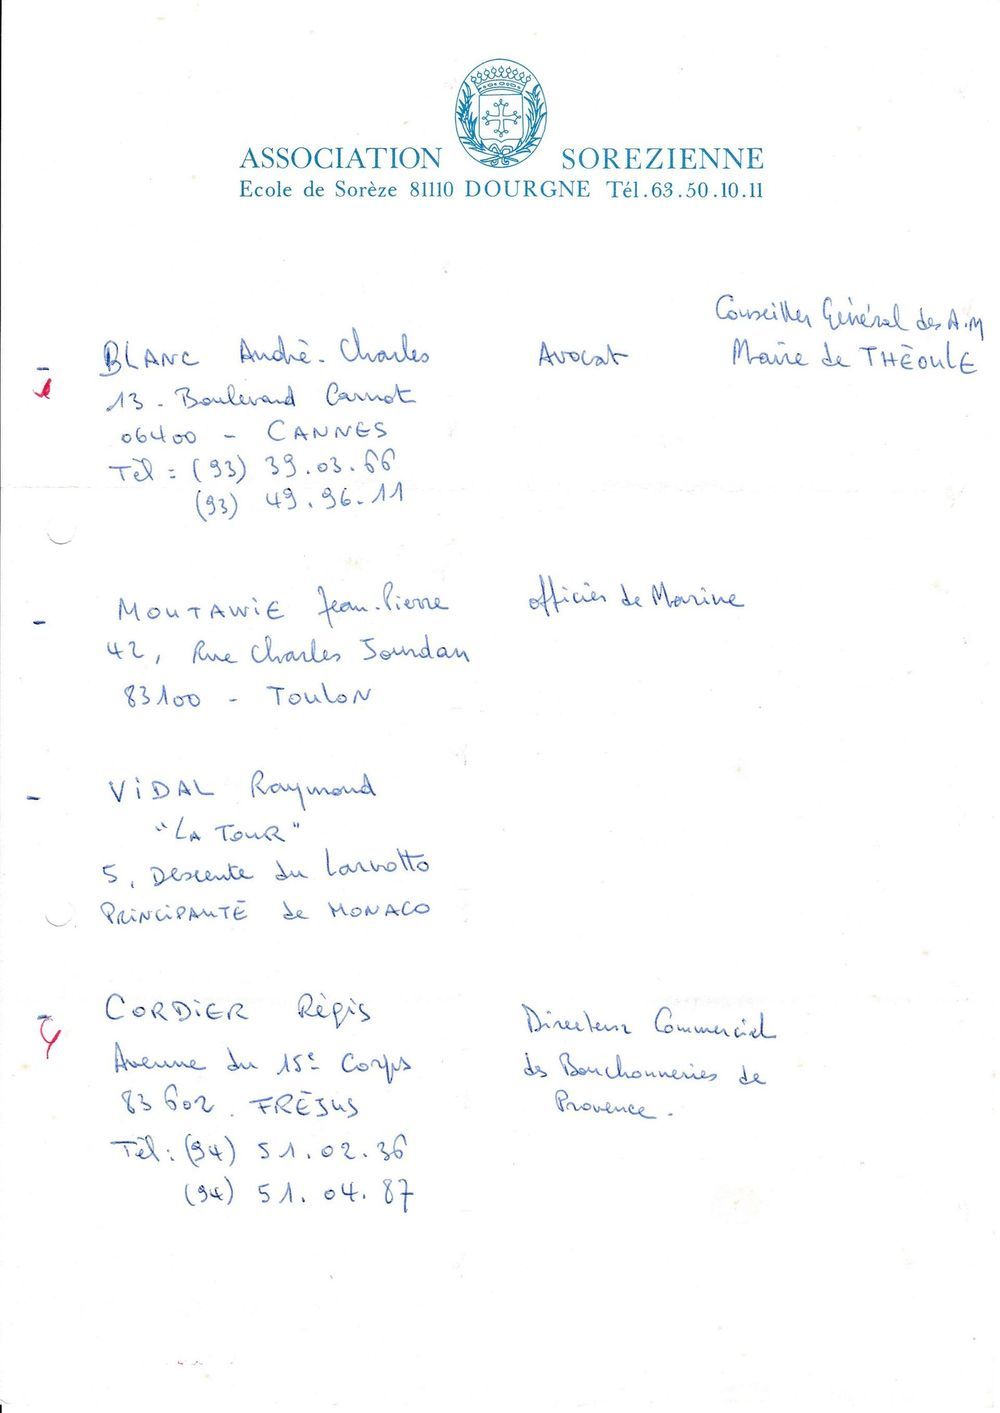 ASSOCIATION SOREZIENNE
Ecole de Sorèze 81110 DOURGNE Tél.63.50.10.11
Conseiller Général des A.M
- BLANC André-Charles Avocat Maire de THÉOULE
13 - Boulevard Carnot
06400 - CANNES
Tél = (93) 39.03.66
(93) 49.96.11
- Jean-Pierre officier de Marine
42, Rue Charles Jourdan
83100 - TOULON
- VIDAL Raymond
"LA TOUR"
5, Descente du Larvotto
PRINCIPAUTÉ de MONACO
- CORDIER Régis Directeur Commercial
Avenue du 15e Corps des Bouchonneries de
83602. FRÉJUS Provence.
Tél: (94) 51.02.36
(94) 51.04.87